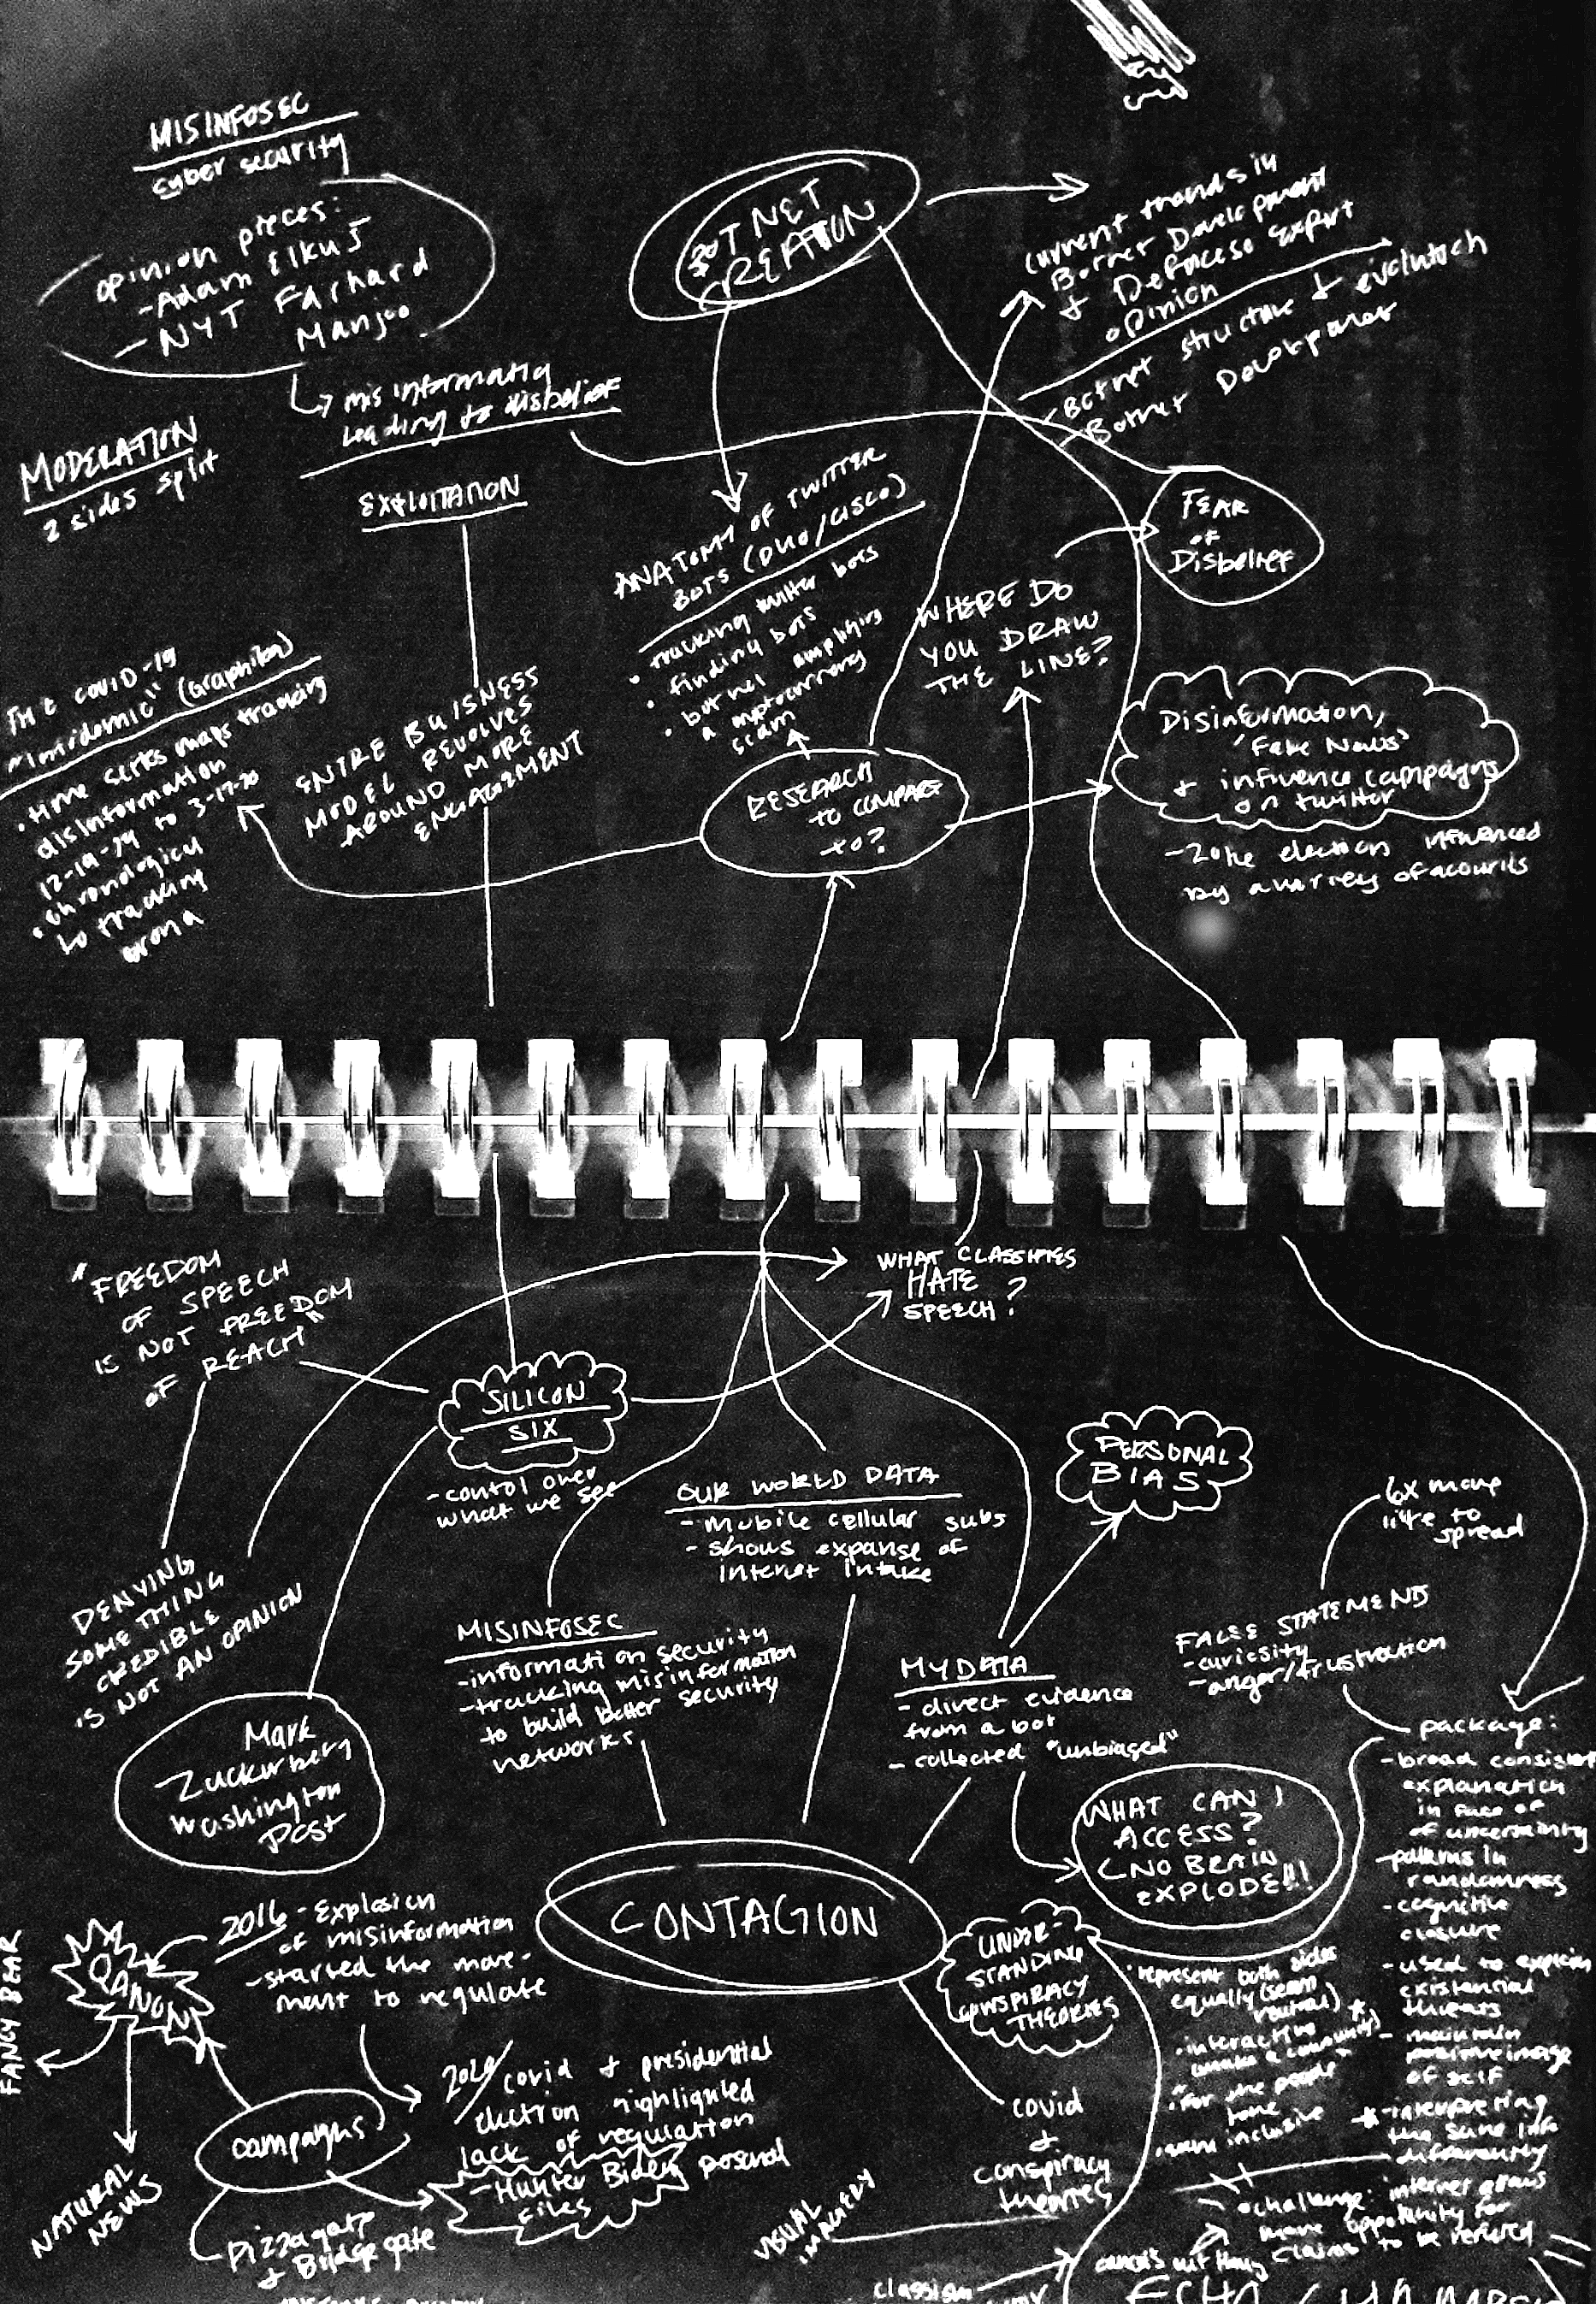 MISINFOSEC
cyber security
opinion pieces:
- Adam Elkus
- NYT Farhard
Manjoo
↳ misinformatig
leading to disbelief
MODERATION
2 sides split
EXPLOITATION
ENTIRE BUISNESS
MODEL REVOLVES
AROUND MORE
ENGAGEMENT
THE COVID-19
"Infidemic" (Graphika)
• time series maps tracking
disinformation
12-19-19 to 3-17-20
• chronological
to tracking
BOTNET
CREATION
current trends in
Botnet Development
+ Defense Expert
opinion
- Botnet structure + evolution
- Botnet Development
ANATOMY OF TWITTER
BOTS (DUO/CISCO)
• tracking twitter bots
• finding bots
• botnet amplifying
a cryptocurrency
scam
FEAR
of
Disbelief
WHERE DO
YOU DRAW
THE LINE?
RESEARCH
TO COMPARE
TO?
Disinformation,
'Fake News'
+ influence campaigns
on twitter
election influenced
by a variey of acounts
"FREEDOM
OF SPEECH
IS NOT FREEDOM
OF REACH"
WHAT CLASSIFIES
HATE
SPEECH?
SILICON
SIX
- control over
what we see
OUR WORLD DATA
- mobile cellular subs
- shows expanse of
internet intake
PERSONAL
BIAS
6x more
like to
spread
DENYING
SOMETHING
CREDIBLE
IS NOT AN OPINION
MISINFOSEC
- information security
- tracking misinformation
to build better security
networks
MY DATA
- direct evidence
from a bot
- collected "unbiased"
FALSE STATEMENTS
- curiosity
- anger/frustration
Mark
Zuckurberg
Washington
Post
WHAT CAN I
ACCESS?
< NO BRAIN
EXPLODE!!!
package:
- broad consist
explanation
in face of
of uncertainty
- patterns in
randomness
- cognitive
closure
- used to explain
existential
threats
- maintain
positive image
of self
* - interpreting
the same info
differently
CONTAGION
UNDER-
STANDING
CONSPIRACY
THEORIES
• represent both sides
equally (seem
neutral) *
• interactive
(make a community)
• "for the people"
tone
• seem inclusive
2016 - Explosion
of misinformation
- started the move-
ment to regulate
QANON
FANCY BEAR
NATURAL
NEWS
campaigns
Pizzagate
+ Bridgegate
2020 covid + presidential
election highlighted
lack of regulation
- Hunter Biden personal
files
covid
+
conspiracy
theories
VISUAL
IMAGERY
• challenge: internet allows
more opportunity for
claims to be refuted
classism
ECHO CHAMBERS